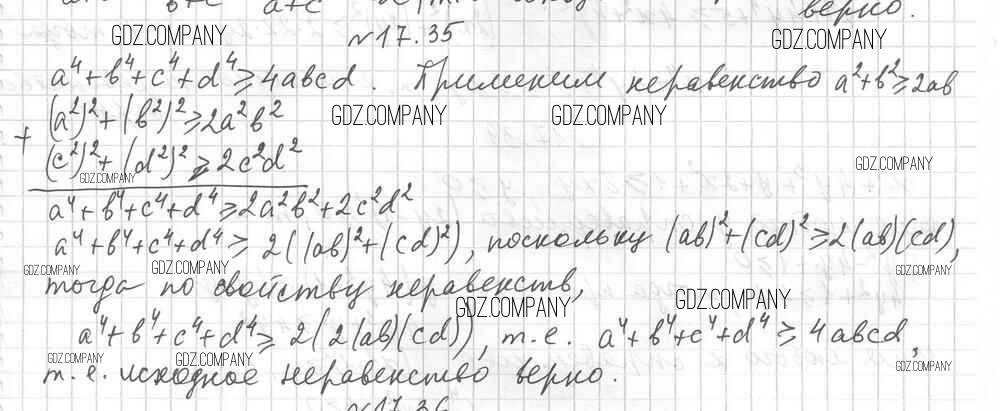 верно.
GDZ.COMPANY №17.35 GDZ.COMPANY
a⁴+b⁴+c⁴+d⁴⩾4abcd. Применим неравенство a²+b²⩾2ab
+ (a²)²+(b²)²⩾2a²b² GDZ.COMPANY GDZ.COMPANY
(c²)²+(d²)²⩾2c²d² GDZ.COMPANY
GDZ.COMPANY
a⁴+b⁴+c⁴+d⁴⩾2a²b²+2c²d²
a⁴+b⁴+c⁴+d⁴⩾2((ab)²+(cd)²), поскольку (ab)²+(cd)²⩾2(ab)(cd),
GDZ.COMPANY GDZ.COMPANY GDZ.COMPANY
тогда по свойству неравенств,
GDZ.COMPANY GDZ.COMPANY
a⁴+b⁴+c⁴+d⁴⩾2(2(ab)(cd)), т.е. a⁴+b⁴+c⁴+d⁴⩾4abcd,
GDZ.COMPANY GDZ.COMPANY GDZ.COMPANY
т.е. исходное неравенство верно.
№17.36